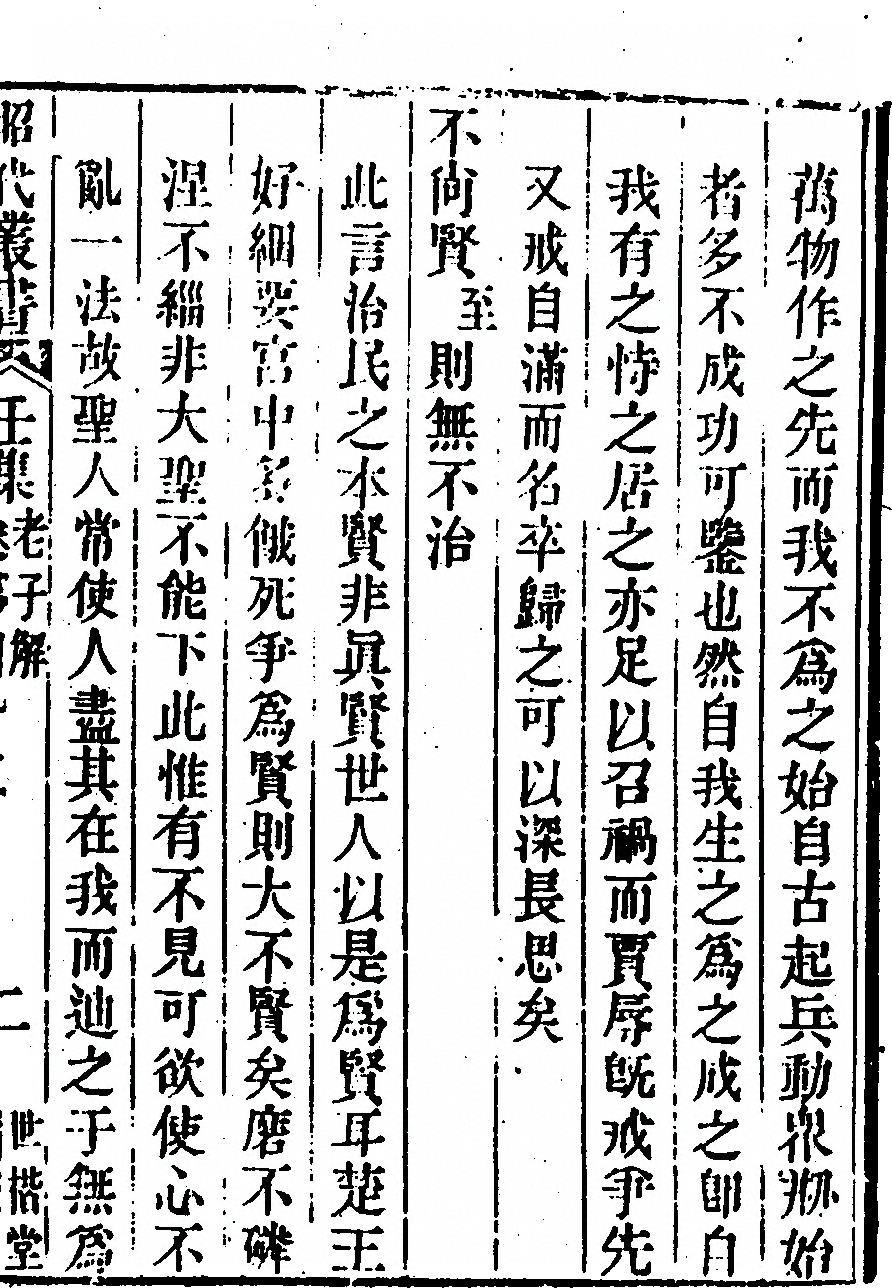 萬物作之先而我不爲之始自古起兵動衆刱始
者多不成功可鑒也然自我生之爲之成之卽自
我有之恃之居之亦足以召禍而賈辱旣戒爭先
又戒自滿而名卒歸之可以深長思矣
不尚賢至則無不治
此言治民之本賢非眞賢世人以是爲賢耳楚王
好細要宮中多餓死爭爲賢則大不賢矣磨不磷
涅不緇非大聖不能下此惟有不見可欲使心不
亂一法故聖人常使人盡其在我而迪之于無爲
昭代叢書 壬集 老子解 二 世楷堂